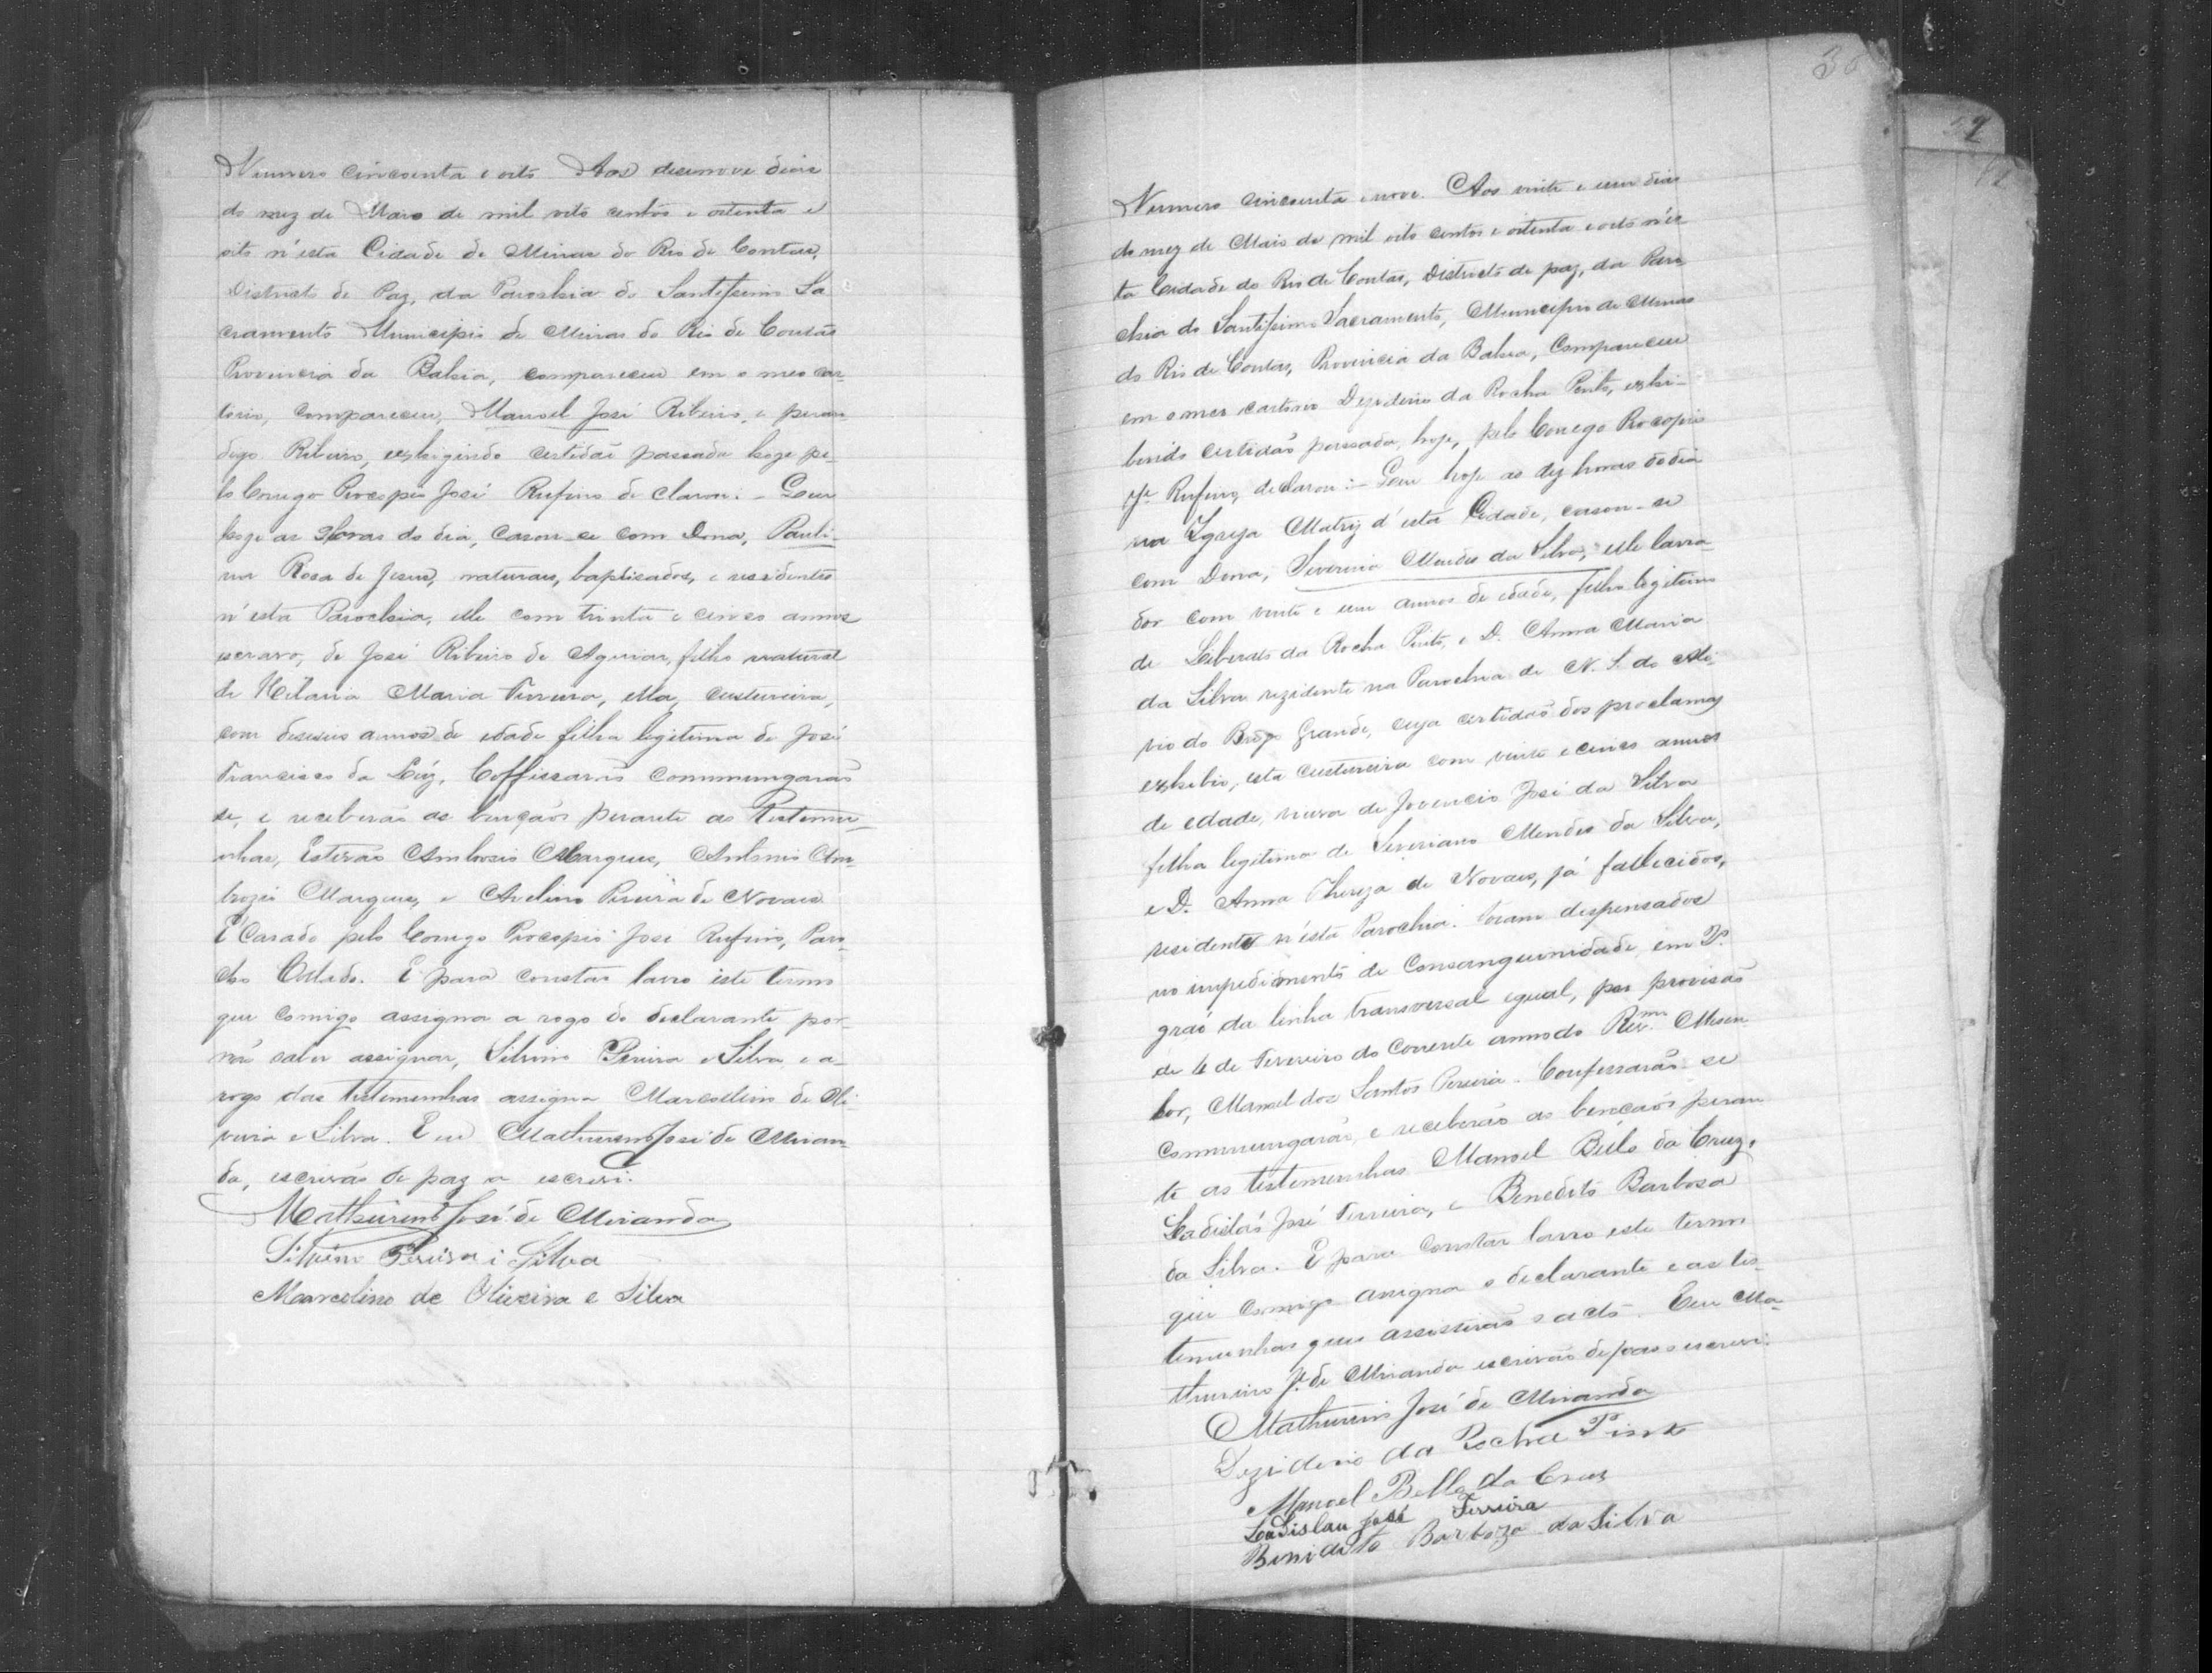 Numero cincoenta e oito Aos desenove dias
do mez de Maio de mil oito centos e oitenta e
oito n'esta Cidade de Minas do Rio de Contas,
Districto de Paz, da Parochia do Santissimo Sa
cramento Municipio de Minas do Rio de Contas
Provincia da Bahia, compareceu em o meo car-
torio, compareceu, Manoel José Ribeiro, e peran
digo Ribeiro, exhigindo certidaõ passada hoje pe-
lo Conego Procopio José Rufino de clarou: - Que
hoje as 9 horas do dia, casou-se com Dona, Pauli-
na Rosa de Jesus, naturaes, baptisados, e residentes
n'esta Parochia, elle com trinta e cinco annos
escravo, de José Ribeiro de Aguiar, filho natural
de Hilaria Maria Ferreira, ella, custureira,
com deseseis annos de edade filha legitima de José
Francisco da Luz, Coffissarão commungarão
se, e receberão as bençaõs perante as Testemu-
nhas, Estevão Ambrosio Marques, Antonio Am-
brozio Marques, e Avelino Pereira de Novaes
E Casado pelo Conego Procopio José Rufino, Paro-
cho Collado. E para constar lavro este termo
que comigo assigna a rogo do declarante por-
não saber assignar, Silvino Pereira e Silva e a-
rogo das testemunhas assigna Marcolino de Oli-
veira e Silva. Eu Mathurino José de Miran-
da, escrivão de paz o escrevi.
Mathurino José de Miranda
Silvino Pereira i Silva
Marcolino de Oliveira e Silva
36
Numero cincoenta e nove. Aos vinte e um dias
do mez de Maio de mil oito centos e oitenta e oito n'es
ta Cidade do Rio de Contas, Districto de paz, da Paro
chia do Santissimo Sacramento, Municipio de Minas
do Rio de Contas, Provincia da Bahia, Compareceu
em o meu cartorio Dezederio da Rocha Pinto, exhi-
bindo certidaõ passada, hoje, pelo Conego Procopio
Jé Rufino, declarou: - Que hoje as dez horas do dia
na Igreja Matriz d'esta Cidade, casou-se
com Dona, Severina Mendes da Silva, elle lavra-
dor com vinte e um annos de edade, filho legitimo
de Liberato da Rocha Pinto, e D. Anna Maria
da Silva rezidente na Parochia de N. S. do Alli-
vio do Brejo Grande, cuja certidaõ dos proclamas
exhibio, esta custureira com vinte e cinco annos
de edade, viuva de Jovencio José da Silva
filha legitima de Severiano Mendes da Silva,
e D. Anna Thereza de Novaes, já fallecidos,
residente n'esta Parochia. Foram despensados
no impedimento de Consanguinidade em 2º
graó da linha transversal igual, por provisão
de 6 de Fevereiro do Corrente anno do Revmo Monsen
hor, Manoel dos Santos Pereira. Confessarão se
communugarão, e receberão as bençaõs peran
te as testemunhas Manoel Bello da Cruz,
Ladisláo José Ferreira, e Benedito Barbosa
da Silva. E para constar lavro este termo
que comigo assigna o declarante e as tes-
temunhas que assistirão o acto. Eu Ma-
thurino Jé de Miranda escrivão de paz o escrevi.
Mathurino José de Miranda
Dezidenio da Rocha Pinto
Manoel Bello da Cruz
Ladislau José Ferreira
Binidito Barboza da Silva